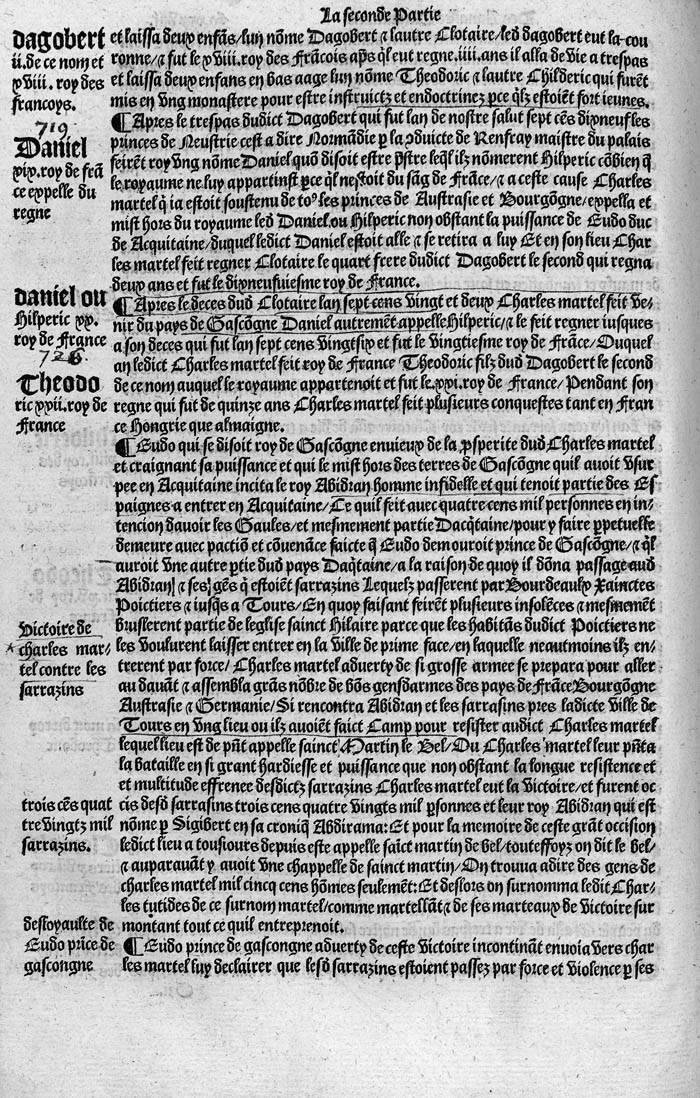 La seconde Partie
dagobert
ii. de ce nom et
xviii. roy des
francoys.
719
Daniel
xix. roy de frã
ce expelle du
regne
daniel ou
Hilperic xx.
roy de France
726.
Theodo
ric xxii. roy de
France
Victoire de
charles mar-
tel contre les
sarrazins
trois cẽs quat
tre vingtz mil
sarrazins.
desloyaulte de
Eudo price de
gascongne
et laissa deux enfãs/lun nõme Dagobert ⁊ lautre Clotaire/led dagobert eut la cou
ronne/⁊ fut le xviii. roy des Frãcois aps ql eut regne .iiii. ans il alla de vie a trespas
et laissa deux enfans en bas aage lun nõme Theodoric ⁊ lautre Childeric qui furẽt
mis en vng monastere pour estre instruictz et endoctrinez pce qlz estoiẽt fort ieunes.
¶ Apres le trespas dudict Dagobert qui fut lan de nostre salut sept cẽs dixneuf les
princes de Neustrie cest a dire Normãdie p la ↄduicte de Renfray maistre du palais
feirẽt roy vng nõme Daniel quõ disoit estre pstre leql ilz nõmerent Hilperic cõbien q̃
le royaume ne luy appartinst pce ql nestoit du sãg de Frãce/⁊ a ceste cause Charles
martel q̃ ia estoit soustenu de toꝰ les princes de Austrasie et Bourgõgne/expella et
mist hors du royaume led Daniel ou Hilperic non obstant la puissance de Eudo duc
de Acquitaine/duquel ledict Daniel estoit alle ⁊ se retira a luy Et en son lieu Char
les martel feit regner Clotaire le quart frere dudict Dagobert le second qui regna
deux ans et fut le dixneufuiesme roy de France.
¶ Apres le deces dud Clotaire lan sept cens vingt et deux Charles martel feit ve-
nir du pays de Gascõgne Daniel autremẽt appelle Hilperic/⁊ le feit regner iusques
a son deces qui fut lan sept cens vingtsix et fut le vingtiesme roy de Frãce/Ouquel
an ledict Charles martel feit roy de France Theodoric filz dud Dagobert le second
de ce nom auquel le royaume appartenoit et fut le .xxi. roy de France/Pendant son
regne qui fut de quinze ans Charles martel feit plusieurs conquestes tant en Fran
ce Hongrie que almaigne.
¶ Eudo qui se disoit roy de Gascõgne envieux de la psperite dud Charles martel
et craignant sa puissance et qui le mist hors des terres de Gascõgne quil auoit vsur
pee en Acquitaine incita le roy Abidran homme infidelle et qui tenoit partie des Es
paignes a entrer en Acquitaine/Ce quil feit auec quatre cens mil personnes en in-
tencion dauoir les Gaules/et mesmement partie Dacq̃taine/pour y faire ppetuelle
demeure auec pactiõ et cõuenãce faicte q̃ Eudo demouroit prince de Gascõgne/⁊ ql
auroit vne autre ptie dud pays Daq̃taine/a la raison de quoy il dõna passage aud
Abidran/ ⁊ ses gẽs q̃ estoiẽt sarrazins Lequelz passerent par Bourdeaulx Xainctes
Poictiers ⁊ iusqs a Tours/En quoy faisant feirẽt plusieurs insolẽces ⁊ mesmemẽt
bruslerent partie de leglise sainct Hilaire parce que les habitãs dudict Poictiers ne
les voulurent laisser entrer en la ville de prime face/en laquelle neautmoins ilz en-
trerent par force/Charles martel aduerty de si grosse armee se prepara pour aller
au dauãt ⁊ assembla grãs nõbre de bõs gensdarmes des pays de Frãce Bourgõgne
Austrasie ⁊ Germanie/Si rencontra Abidran et les sarrasins pres ladicte ville de
Tours en vng lieu ou ilz auoiẽt faict Camp pour resister audict Charles martel
lequel lieu est de pñt appelle sainct Martin le Bel/Ou Charles martel leur pñta
la bataille en si grant hardiesse et puissance que non obstant la longue resistence et
et multitude effrenee desdictz sarrazins Charles martel eut la Victoire/et furent oc
cis desd sarrasins trois cens quatre vingts mil psonnes et leur roy Abidran qui est
nõme p Sigibert en sa croniq̃ Abdirama: Et pour la memoire de ceste grãt occision
ledict lieu a tousiours depuis este appelle saict martin de bel/touteffoyz on dit le bel/
⁊ auparauãt y auoit vne chappelle de sainct martin/On trouua adire des gens de
charles martel mil cinq cens hõmes seulemẽt: Et deslors on surnomma ledit Char/
les tutides de ce surnom martel/comme martellãt ⁊ de ses marteaux de victoire sur
montant tout ce quil entreprenoit.
¶ Eudo prince de gascongne aduerty de ceste Victoire incontinãt enuoia vers char
les martel luy declairer que lesd sarrazins estoient passez par force et violence p ses